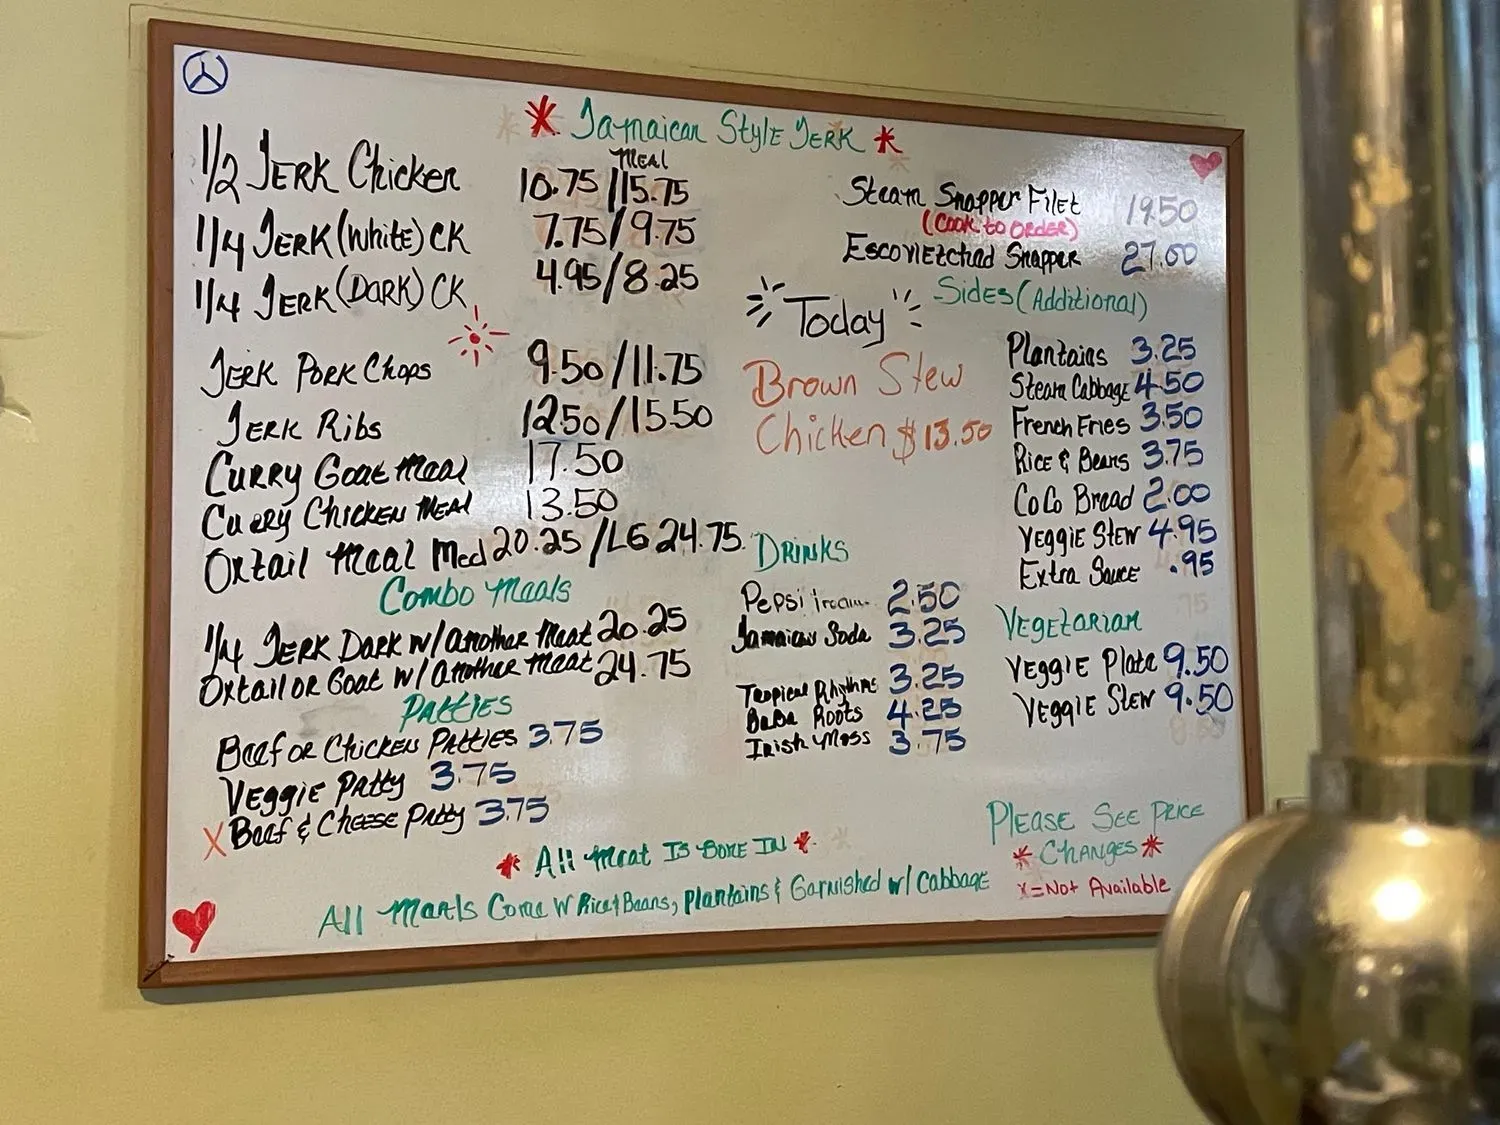 * Jamaican Style JERK *
MEAL
1/2 JERK Chicken 10.75/15.75
1/4 JERK (White) CK 7.75/9.75
1/4 JERK (DARK) CK 4.95/8.25
JERK PORK Chops 9.50/11.75
JERK Ribs 12.50/15.50
CURRY Goat Meal 17.50
Curry Chicken Meal 13.50
Oxtail Meal Med 20.25/LG 24.75
Combo Meals
1/4 JERK DARK w/another Meat 20.25
Oxtail OR Goat w/another meat 24.75
Patties
Beef OR Chicken Patties 3.75
Veggie Patty 3.75
X Beef & Cheese Patty 3.75
Steam Snapper Filet 19.50
(Cook to ORDER)
Escovietchad Snapper 27.00
Today
Brown Stew
Chicken $13.50
Sides (Additional)
Plantains 3.25
Steam Cabbage 4.50
French Fries 3.50
Rice & Beans 3.75
CoCo Bread 2.00
Veggie Stew 4.95
Extra Sauce .95
DRINKS
Pepsi 2.50
Jamaican Soda 3.25
Tropical Rhythms 3.25
BaBa Roots 4.25
Irish Moss 3.75
Vegetarian
Veggie Plate 9.50
Veggie Stew 9.50
* All Meat Is BONE IN *
All Meals Come W Rice & Beans, Plantains & Garnished w/ Cabbage
Please See Price
* Changes *
x=Not Available